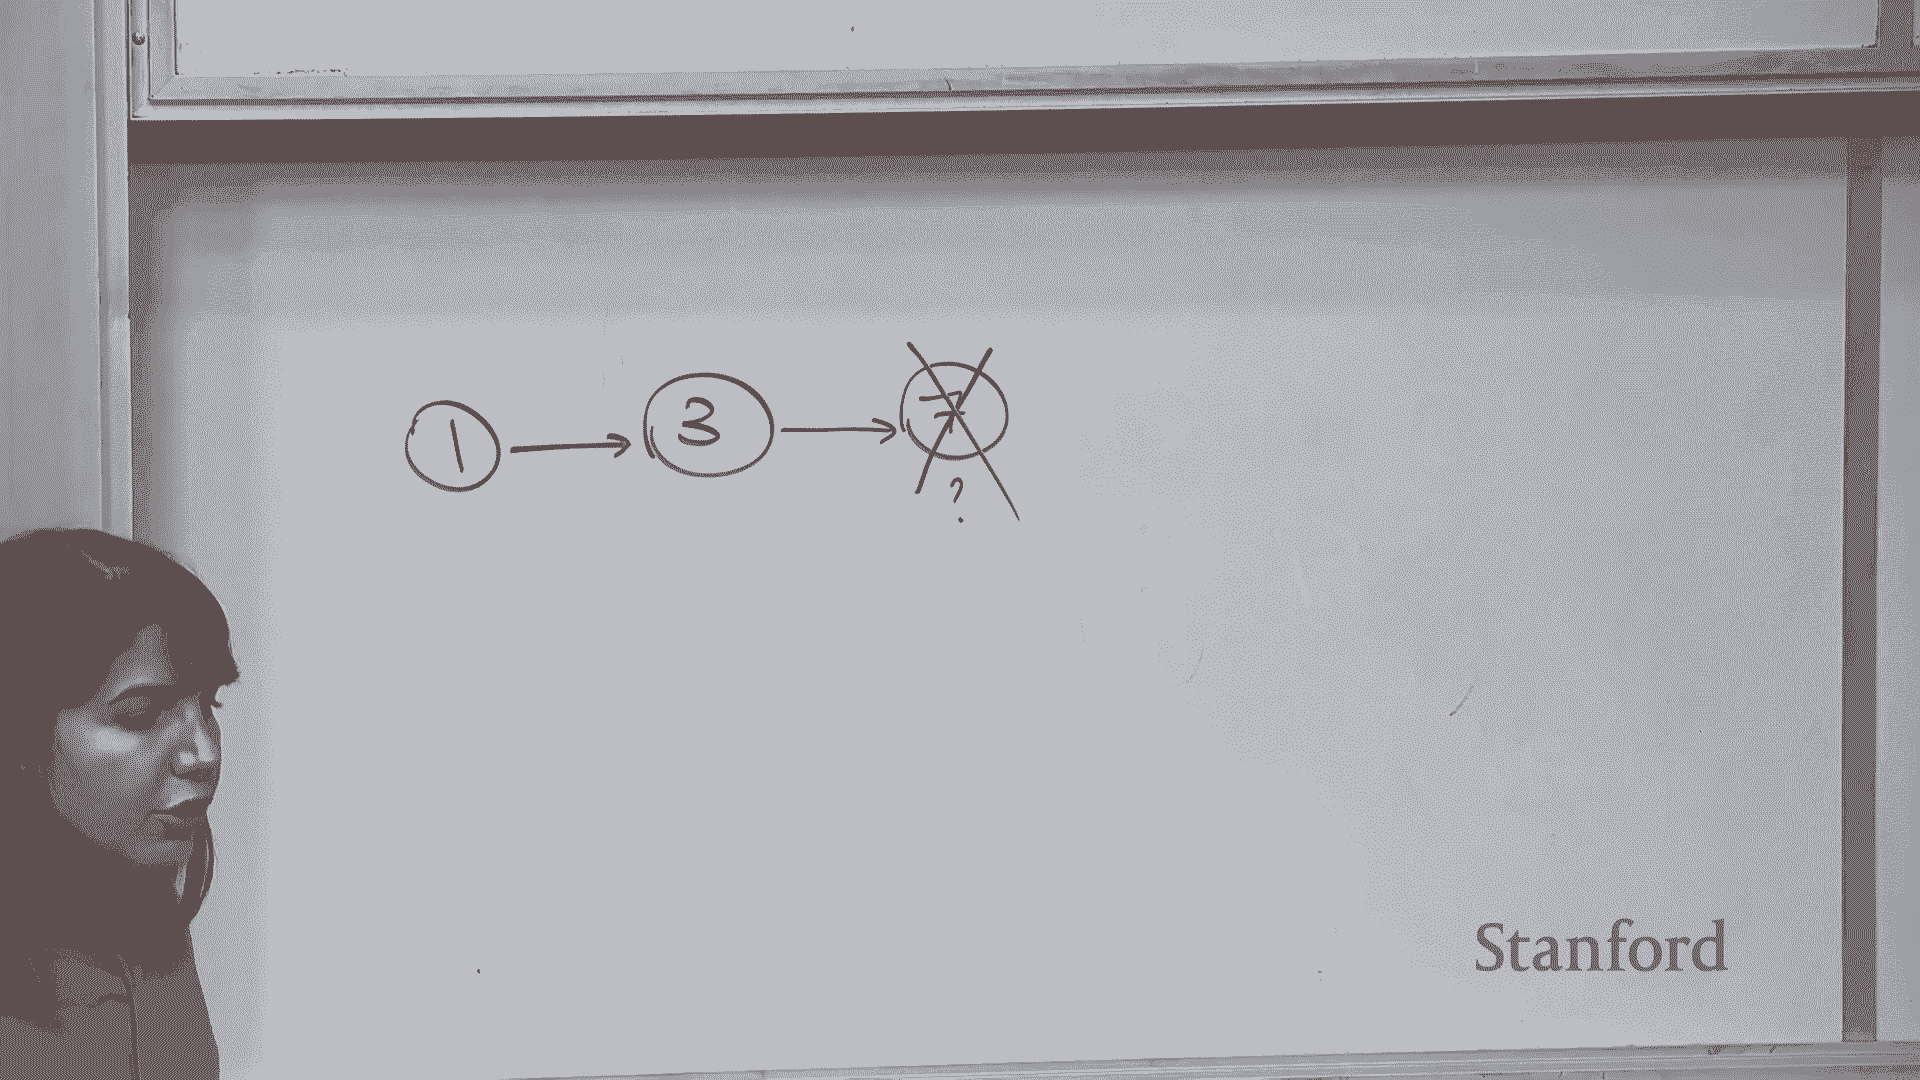 1 → 3 → 7
?
Stanford